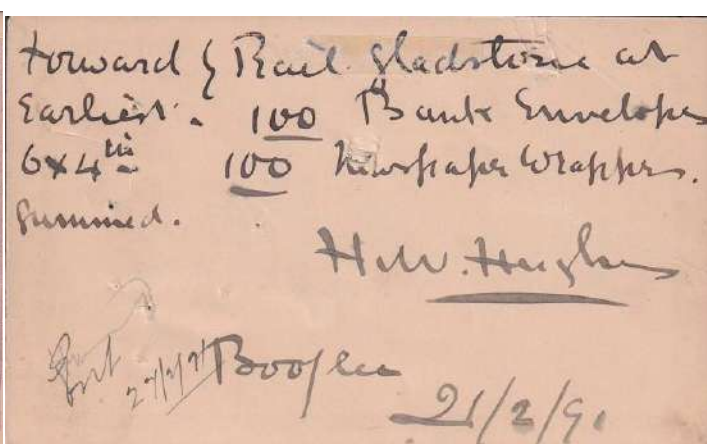 Forward by Rail Gladstone at
Earliest. 100 Bank Envelopes
6x4 in 100 Newspaper Wrappers.
Gummed.
H.W. Hughes
27/2/91
Boo
21/2/91